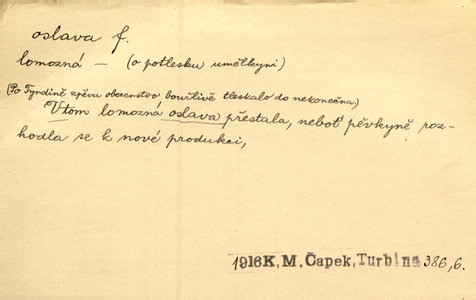 oslava f.
lomozná — (o potlesku umělkyni)
(Po Tyndině zpěvu obecenstvo bouřlivě tleskalo do nekonečna,)
Vtom lomozná oslava přestala, neboť pěvkyně roz-
hodla se k nové produkci,
1916 K. M. Čapek, Turbina 386, 6.